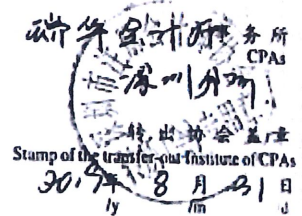 瑞华会计师事务所
CPAs
深圳分所
转出协会盖章
Stamp of the transfer-out Institute of CPAs
2019年 8 月 31 日
/y /m /d